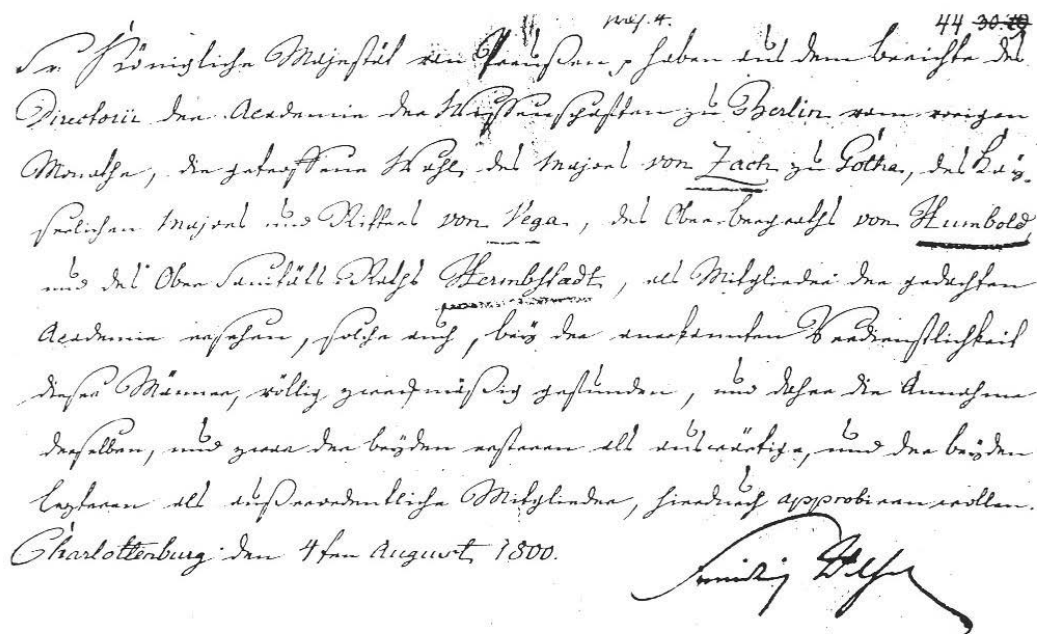 44 30.29
Sr. Königliche Majestät von Preußen p haben aus dem berichte des
Directorii der Academie der Wissenschaften zu Berlin vom vorigen
Monathe, die getroffene Wahl, des Majors von Zach zu Gotha, des Kay-
serlichen Majors und Ritters von Vega, des Oberbergraths von Humbold,
und des Ober Sanitäts Raths Hermbstadt, als Mitglieder der gedachten
Academie ersehen, solche auch, bey der anerkannten Verdienstlichkeit
dieser Männer, völlig zweckmäßig gefunden, und daher die Annahme
derselben, und zwar der beyden ersteren als auswärtige, und der beyden
lezteren als außerordentliche Mitglieder, hierdurch approbiren wollen.
Charlottenburg den 4ten August 1800.
Friedrich Wilhelm